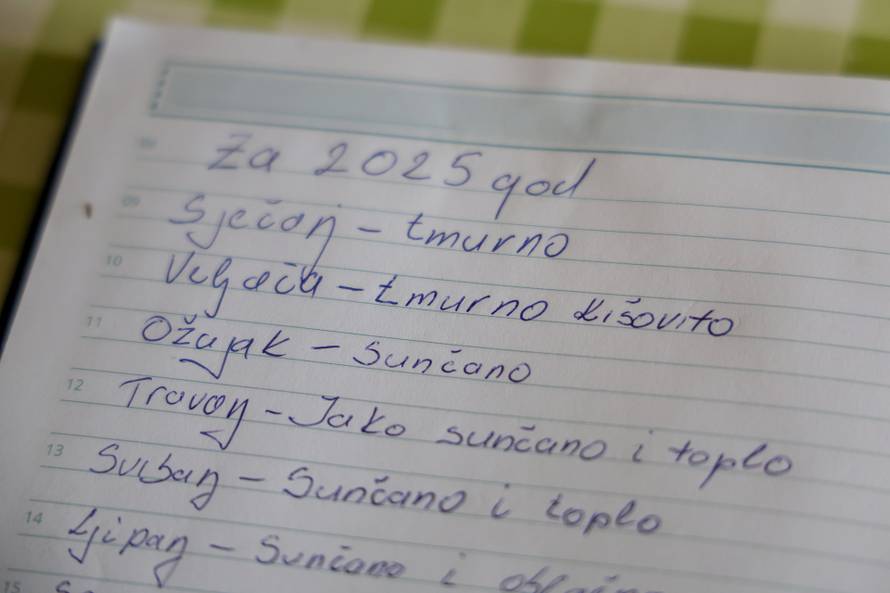 Za 2025 god
09
Sječanj - tmurno
10
Veljača - tmurno kišovito
11
Ožujak - Sunčano
12
Travanj - Jako sunčano i toplo
13
Svibanj - Sunčano i toplo
14
Lipanj - Sunčano i
15